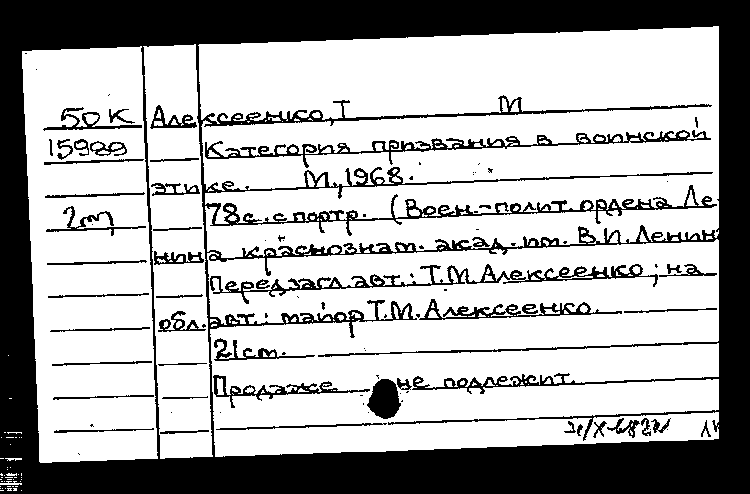 50К Алексеенко, Т М
15989 Категория призвания в воинской
этике. М., 1968.
78с. с портр. (Воен.-полит. ордена Ле-
нина краснознам. акад. им. В.И. Ленина
Перед загл. авт.: Т.М. Алексеенко; на
обл. авт.: майор Т.М. Алексеенко.
21см.
Продаже не подлежит.